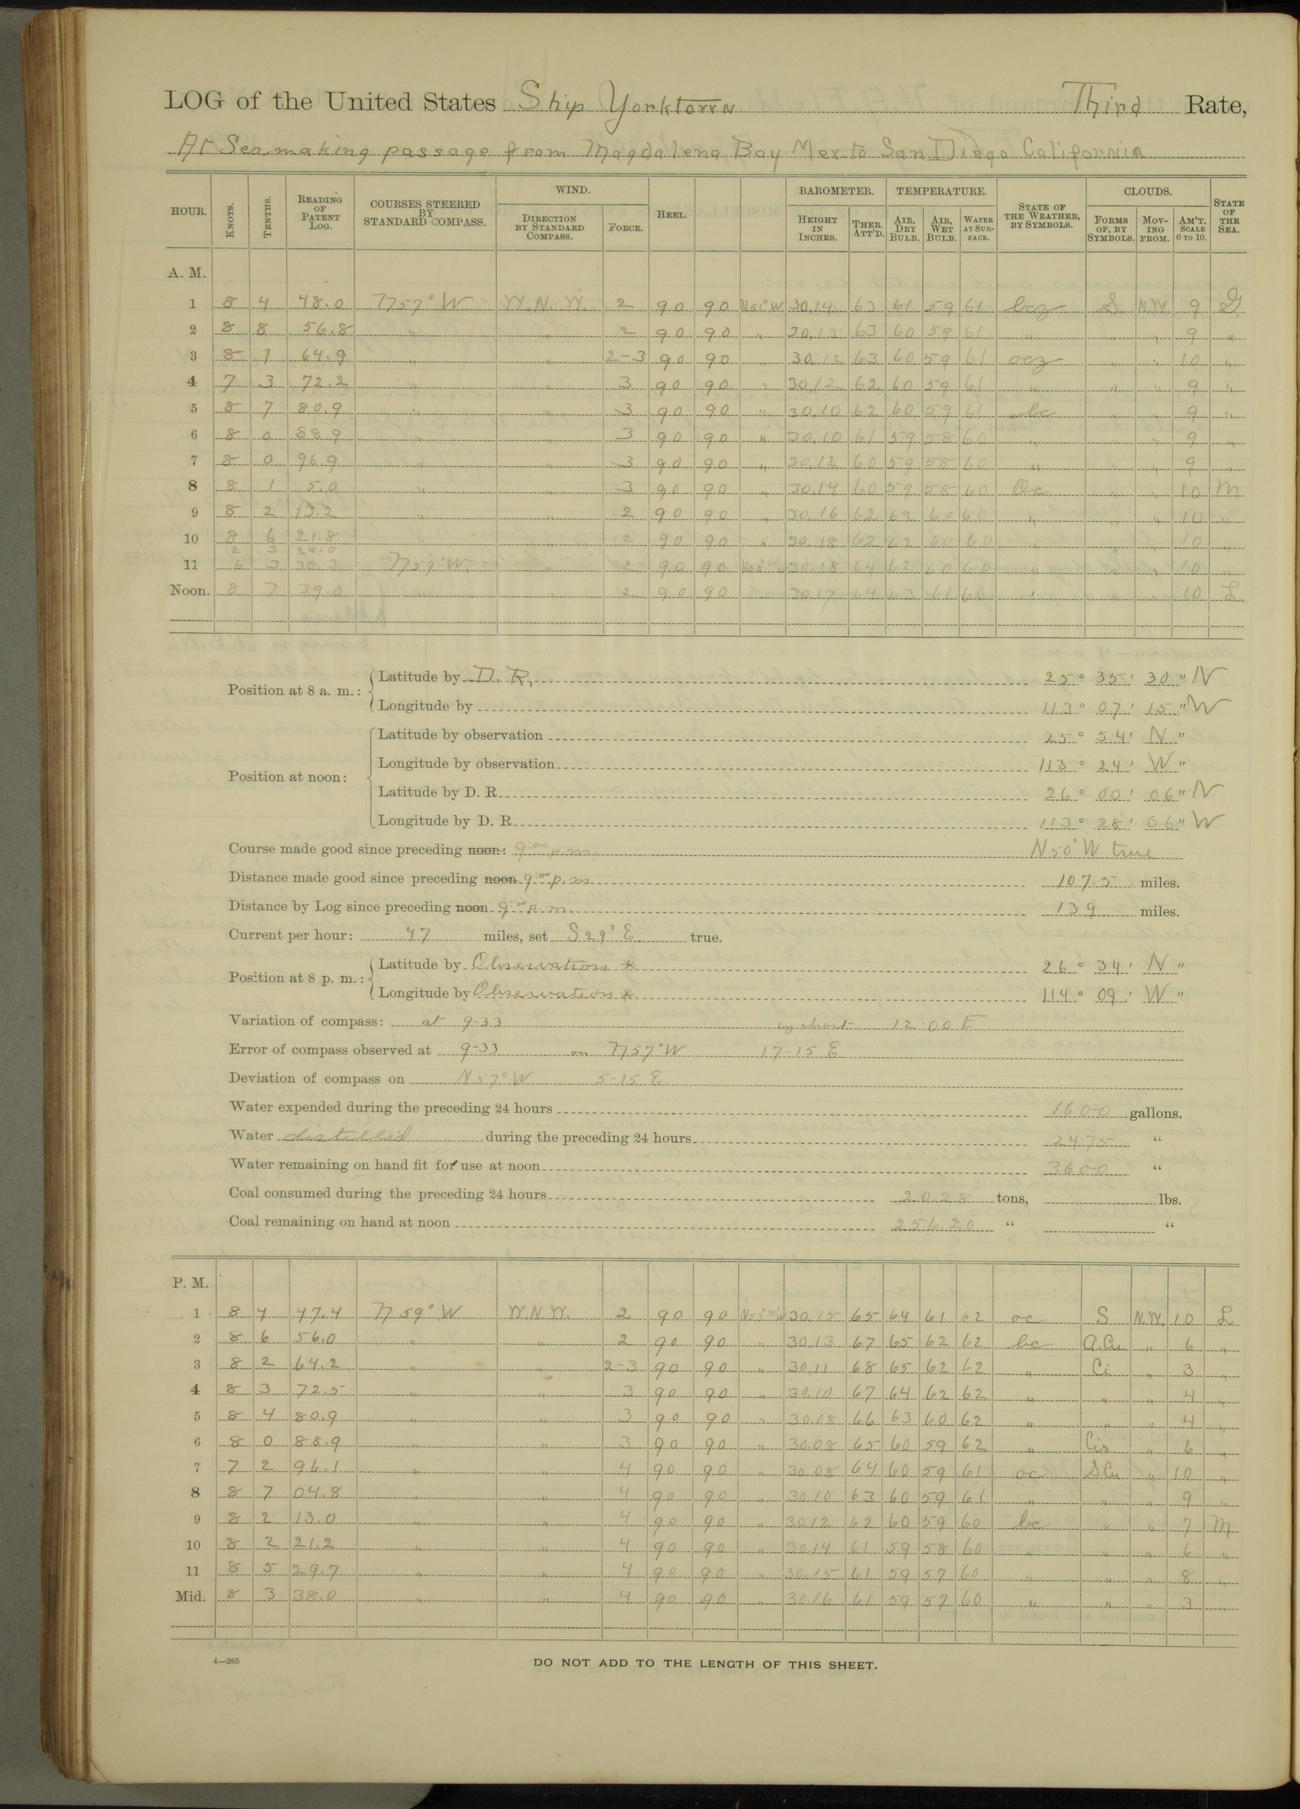 LOG of the United States Ship Yorktown Third Rate,
At Sea making passage from Magdalena Bay Mex to San Diego California
HOUR. KNOTS. TENTHS. READING OF PATENT LOG. COURSES STEERED BY STANDARD COMPASS. WIND. DIRECTION BY STANDARD COMPASS. FORCE. HEEL. BAROMETER. HEIGHT IN INCHES. THER. ATT'D. TEMPERATURE. AIR, DRY BULB. AIR, WET BULB. WATER AT SURFACE. STATE OF THE WEATHER, BY SYMBOLS. CLOUDS. FORMS OF, BY SYMBOLS. MOVING FROM. AM'T. SCALE 0 TO 10. STATE OF THE SEA.
A. M.
1 8 4 48.0 N57°W W.N.W. 2 90 90 N51°W 30.14 63 61 59 61 bcz S N.W 9 G
2 8 8 56.8 " " 2 90 90 " 30.13 63 60 59 61 " " " 9 "
3 8 1 64.9 " " 2-3 90 90 " 30.12 63 60 59 61 ocz " " 10 "
4 7 3 72.2 " " 3 90 90 " 30.12 62 60 59 61 " " " 9 "
5 8 7 80.9 " " 3 90 90 " 30.10 62 60 59 61 bc " " 9 "
6 8 0 88.9 " " 3 90 90 " 30.10 61 59 58 60 " " " 9 "
7 8 0 96.9 " " 3 90 90 " 30.12 60 59 58 60 " " " 9 "
8 8 1 5.0 " " 3 90 90 " 30.14 60 59 58 60 Oc " " 10 M
9 8 2 13.2 " " 2 90 90 " 30.16 62 62 60 60 " " " 10 "
10 8 6 21.8 " " 2 90 90 " 30.18 62 62 60 60 " " " 10 "
2 3 24.0
11 6 3 30.3 N59°W. " 2 90 90 30.18 64 62 60 60 " " " 10 "
Noon. 8 7 39.0 " " 2 90 90 " 30.17 64 63 61 60 " " " 10 L
Position at 8 a. m.: Latitude by D. R. 25° 35' 30" N
Longitude by 113° 07' 15" W
Position at noon: Latitude by observation 25° 54' N "
Longitude by observation 113° 24' W "
Latitude by D. R. 26° 00' 06" N
Longitude by D. R. 113° 28' 06" W
Course made good since preceding noon: 9:00 p.m. N50°W true
Distance made good since preceding noon 9:00 p.m 107.5 miles.
Distance by Log since preceding noon 9:00 p.m. 139 miles.
Current per hour: .47 miles, set S29°E. true.
Position at 8 p. m.: Latitude by Observation * 26° 34' N "
Longitude by Observation * 114° 09' W "
Variation of compass: at 9-33 by chart 12-00 E
Error of compass observed at 9-33 on N57°W 17-15 E
Deviation of compass on N57°W 5-15 E.
Water expended during the preceding 24 hours 1600 gallons.
Water distilled during the preceding 24 hours 2475 "
Water remaining on hand fit for use at noon 3600 "
Coal consumed during the preceding 24 hours 20.28 tons, lbs.
Coal remaining on hand at noon 256.20 " "
P. M.
1 8 4 47.4 N59°W W.N.W. 2 90 90 30.15 65 64 61 62 oc S N.W. 10 L
2 8 6 56.0 " " 2 90 90 " 30.13 67 65 62 62 bc A.Cu " 6 "
3 8 2 64.2 " " 2-3 90 90 " 30.11 68 65 62 62 Ci " 3 "
4 8 3 72.5 " " 3 90 90 " 30.10 67 64 62 62 " " " 4 "
5 8 4 80.9 " " 3 90 90 " 30.08 66 63 60 62 " " " 4 "
6 8 0 88.9 " " 3 90 90 " 30.08 65 60 59 62 " Cis " 6 "
7 7 2 96.1 " " 4 90 90 " 30.08 64 60 59 61 oc S.Cu " 10 "
8 8 7 04.8 " " 4 90 90 " 30.10 63 60 59 61 " " " 9 "
9 8 2 13.0 " " 4 90 90 " 30.12 62 60 59 60 bc " " 7 M
10 8 2 21.2 " " 4 90 90 " 30.14 61 59 58 60 " " " 6 "
11 8 5 29.7 " " 4 90 90 " 30.15 61 59 57 60 " " " 8 "
Mid. 8 3 38.0 " " 4 90 90 " 30.16 61 59 57 60 " " " 3 "
4—265
DO NOT ADD TO THE LENGTH OF THIS SHEET.